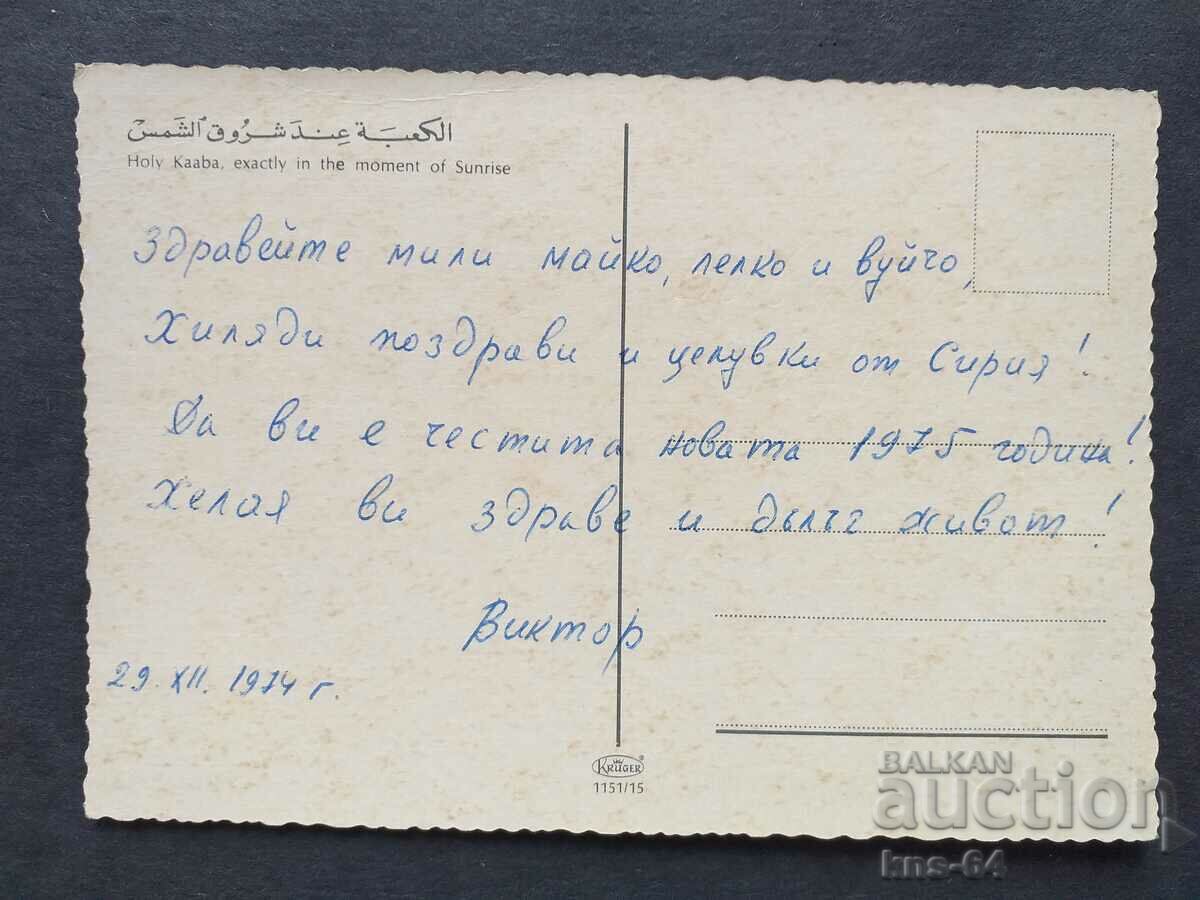 الكعبة عند شروق الشمس
Holy Kaaba, exactly in the moment of Sunrise
Здравейте мили майко, лелко и вуйчо,
Хиляди поздрави и целувки от Сирия!
Да ви е честита новата 1975 година!
Желая ви здраве и дълъг живот!
Виктор
29. XII. 1974 г.
KRÜGER
1151/15
BALKAN
auction
kns-64